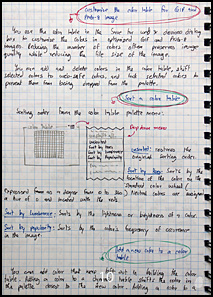 Customise the color table for GIF and PNG-8 image
You use the color table in the Save for web & devices dialog
box to customise the colors in optimized GIF and PNG-8
images. Reducing the number of colors often preserves image
quality while reducing the file size of the image.
You can add and delete colors in the color table, shift
selected colors to web-safe colors, and lock selected colors to
prevent them from being dropped from the palette.
Sort a color table
Sorting colors from the color table palette menu:
Unsorted
Sort by Hue
Sort by Luminance
Sort by Popularity
Dropdown menu
Unsorted: restores the
original sorting order.
Sort by hue: Sorts by the
location of the color on the
standard color wheel (
expressed from as a degree from 0 to 360) Neutral colors are assigned
a hue of 0 and located with the reds.
Sort by luminance: Sorts by the lightness or brightness of a color.
Sort by popularity: Sorts by the colors's frequency of occurrence
in the image.
Add a new color to a color
table
You can add color that
out in building the color
table. Adding a color to a
table shifts the color in
the palette closest to the new color. Adding a color to a